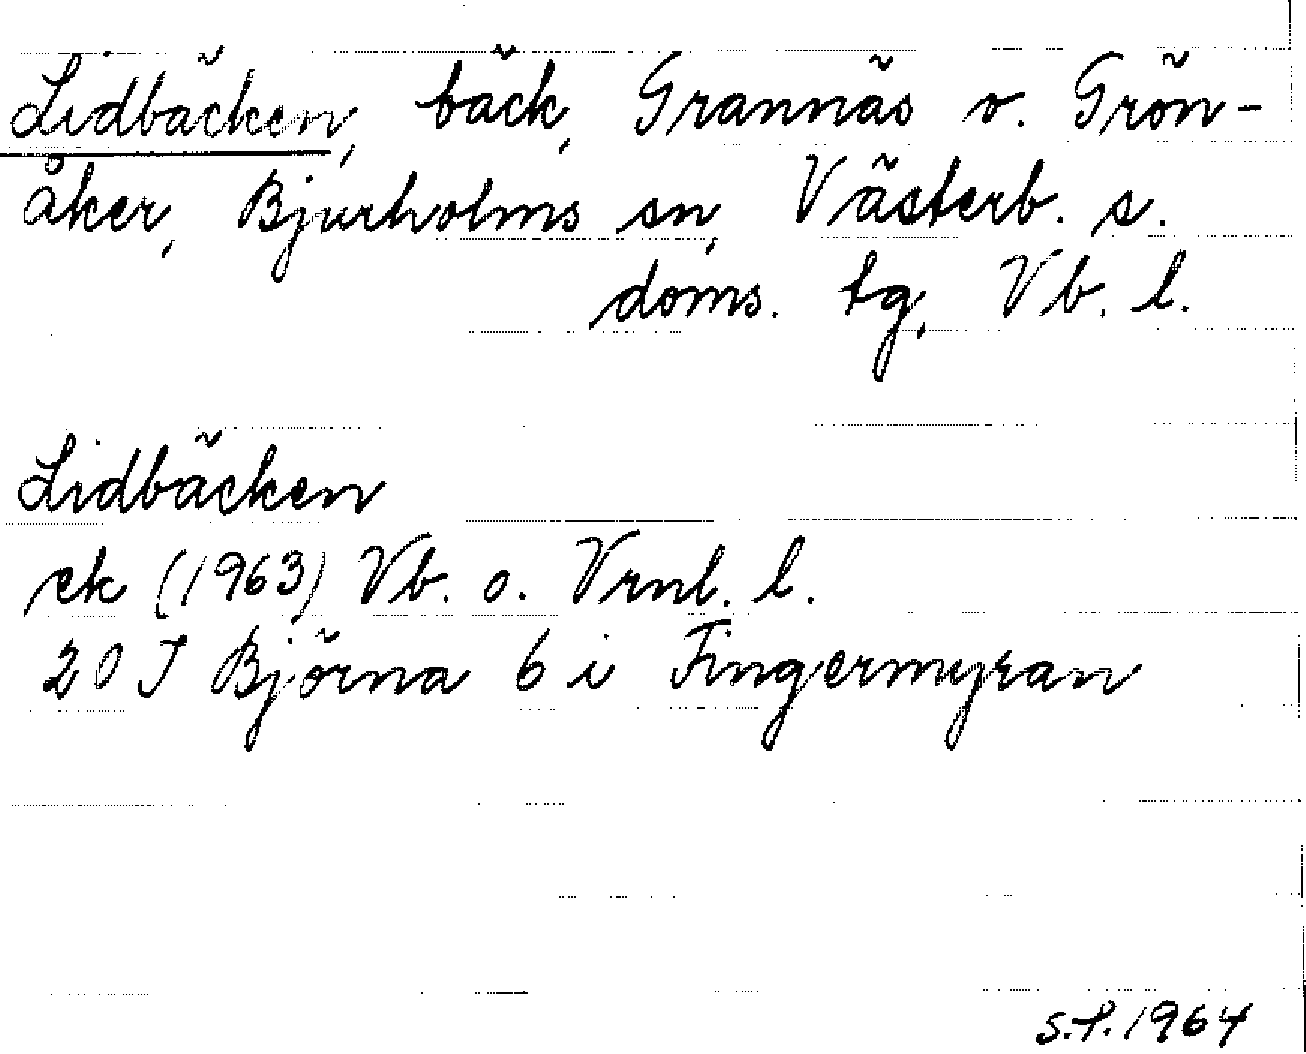 Lidbäcken, bäck, Grannäs o. Grön-
åker, Bjurholms sn, Västerb. s.
doms. tg, Vb. l.
Lidbäcken
ek (1963) Vb. o. Vrnl. l.
20 J Björna 6 i Fingermyran
S.P. 1964